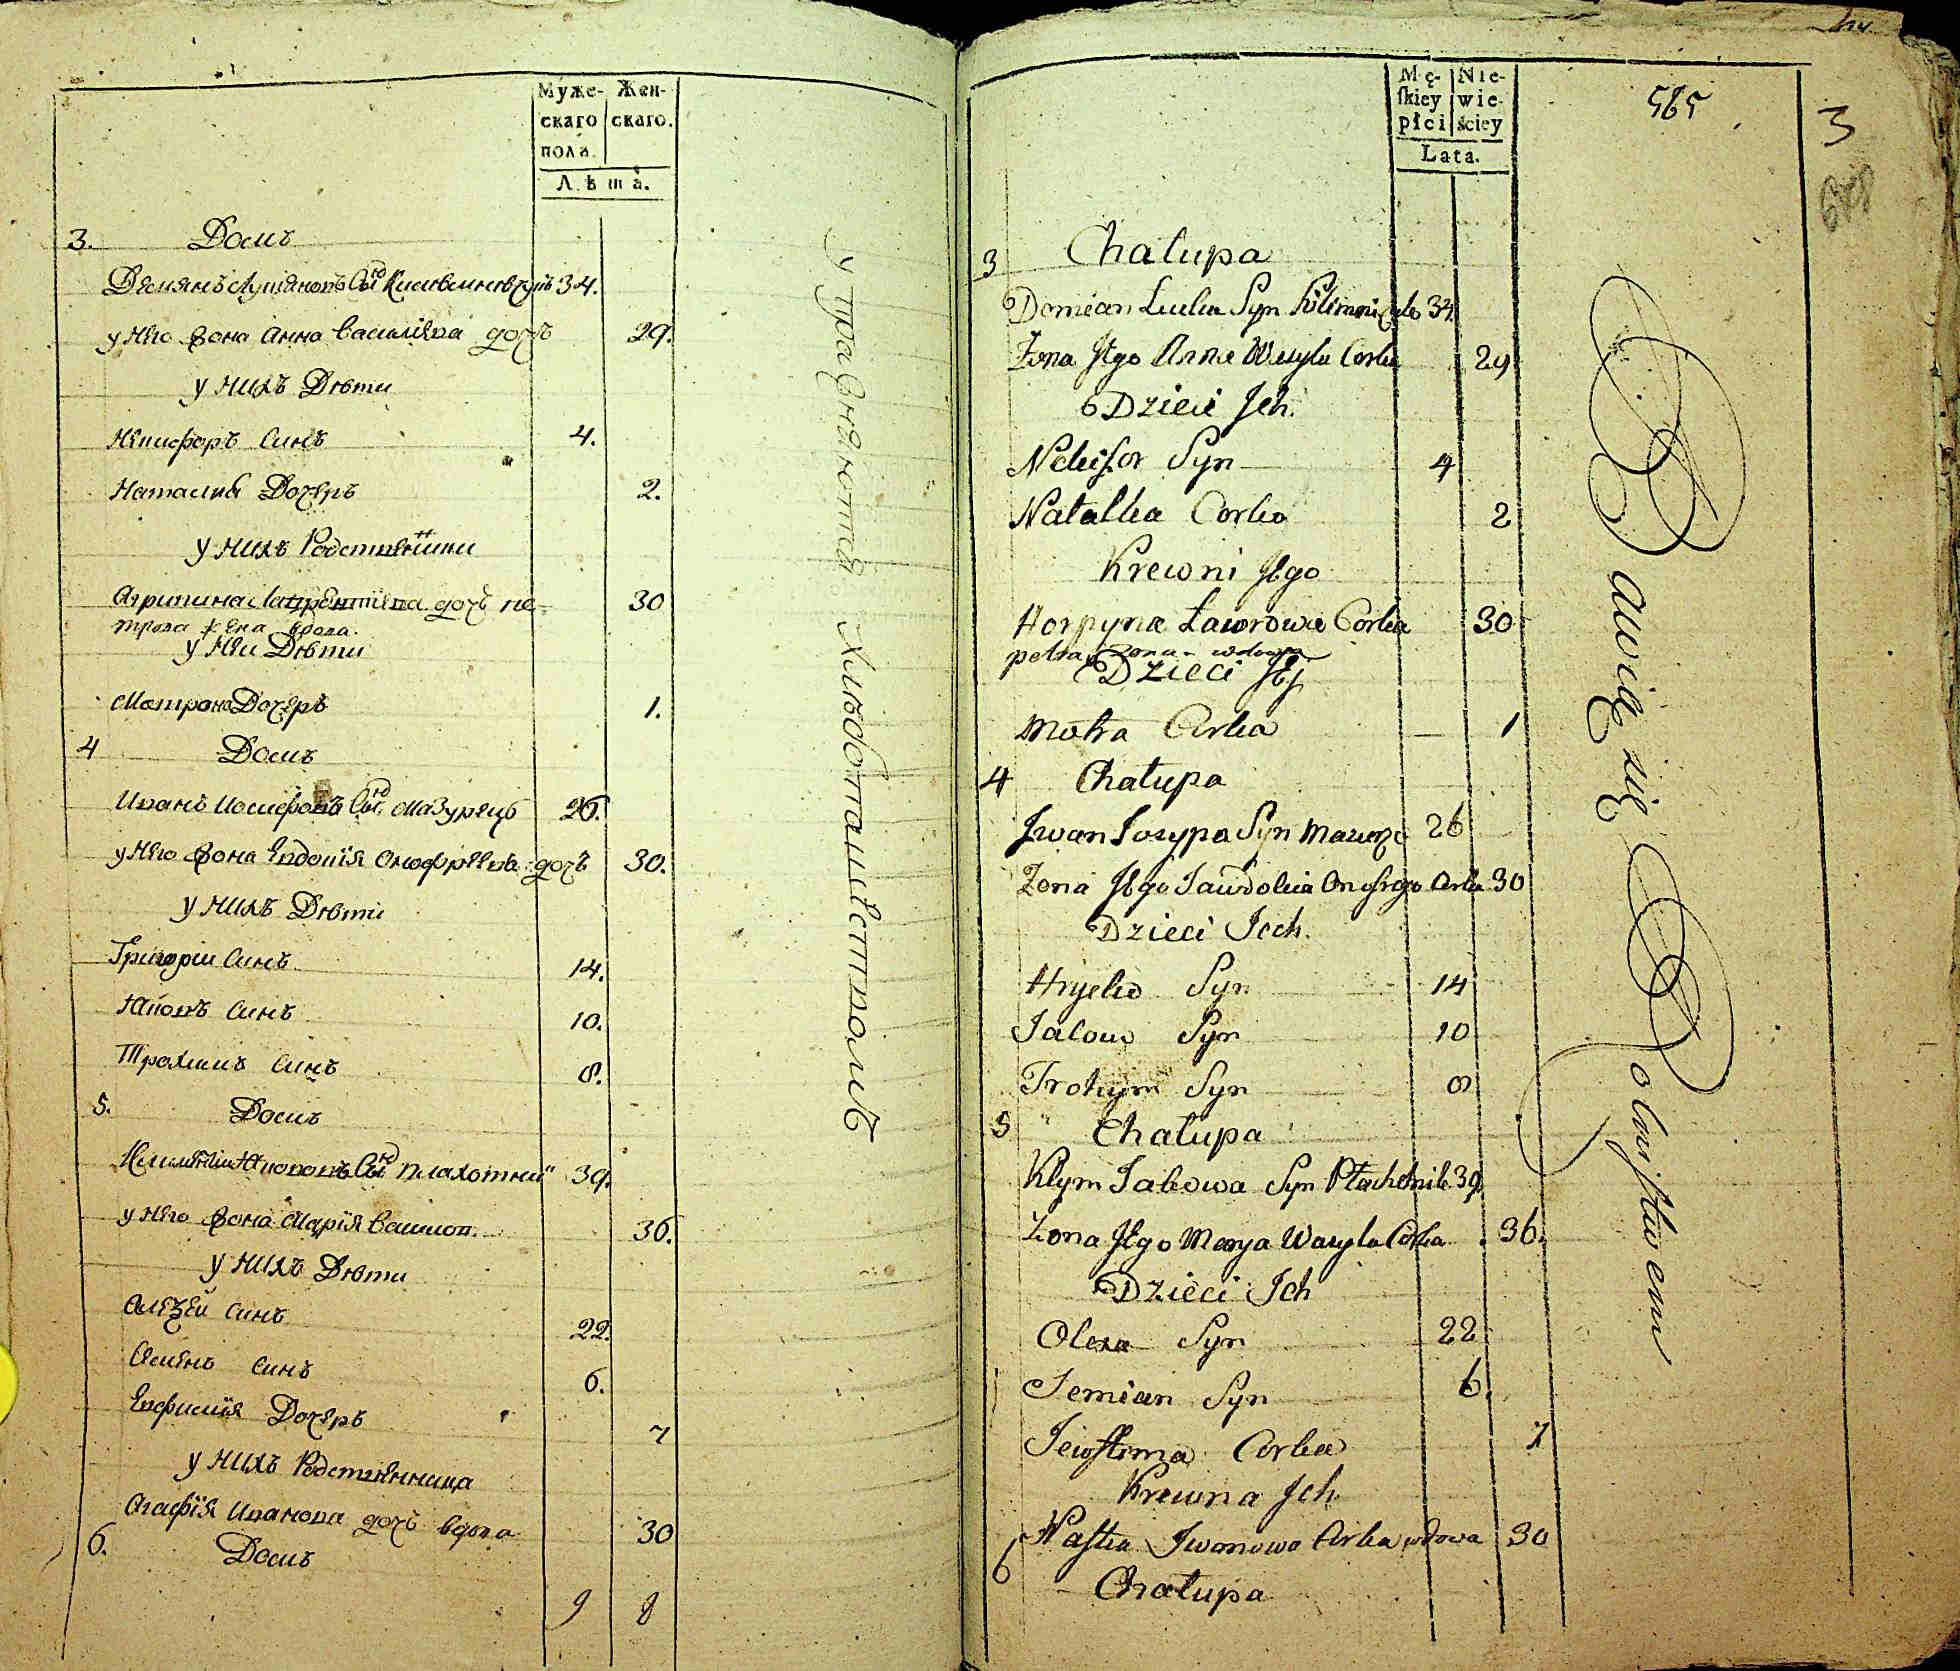 Муже- Жен-
скаго скаго.
полъ.
Лѣта.
3. Домъ
Демянъ Лукяновъ Сынъ 34.
у него Жона Анна Василиева дочъ 29.
у нихъ Дѣти
Никифоръ Синъ 4.
Наталия Дочеръ 2.
у нихъ Родственники
Агрипина Лаврентиева дочъ пе- 30
трова жена вдова.
у неи Дѣти
Матрона Дочеръ 1.
4 Домъ
Иванъ Иосифовъ Сынъ Мазурецъ 26.
у него Жона Евдокія Онофріева дочъ 30.
у нихъ Дѣти
Григории Синъ 14.
Яковъ Синъ 10.
Трохимъ Синъ 8.
5. Домъ
Климентии Якововъ Сынъ Плахотни 39.
у него Жона Марія Васили 36.
у нихъ Дѣти
Алеѯей Синъ 22.
Семенъ Синъ 6.
Евфимія Дочеръ 7
у нихъ Родственница
Агафія Иванова дочъ вдова 30
6. Домъ
9 8
упражняются Хлѣбопашествомъ
Mę- Nie-
ſkiey wie-
płci ściey
Lata.
565
3
3 Chałupa
Domian Łuka Syn 34
Zona Jego Anna Wasyla Corka 29
Dzieci Jch.
Nikifor Syn 4
Natalka Corka 2
Krewni Jego
Horpyna Ławrowa Corka 30
petra zona wdowa
Dzieci Jej
Motra Corka 1
4 Chałupa
Jwan Josypa Syn Mazurec 26
Zona Jego Jawdokia Onofrego Corka 30
Dzieci Jch.
Hryćko Syn 14
Jakow Syn 10
Trohym Syn 8
5 Chałupa
Klym Jakowa Syn Płachotnik 39
Zona Jego Marya Wasyla Corka 36.
Dzieci Jch
Olexa Syn 22
Semian Syn 6.
Jewfima Corka 7
Krewna Jch
Nastia Jwanowa Corka wdowa 30
6 Chałupa
Bawią się Rolnictwem